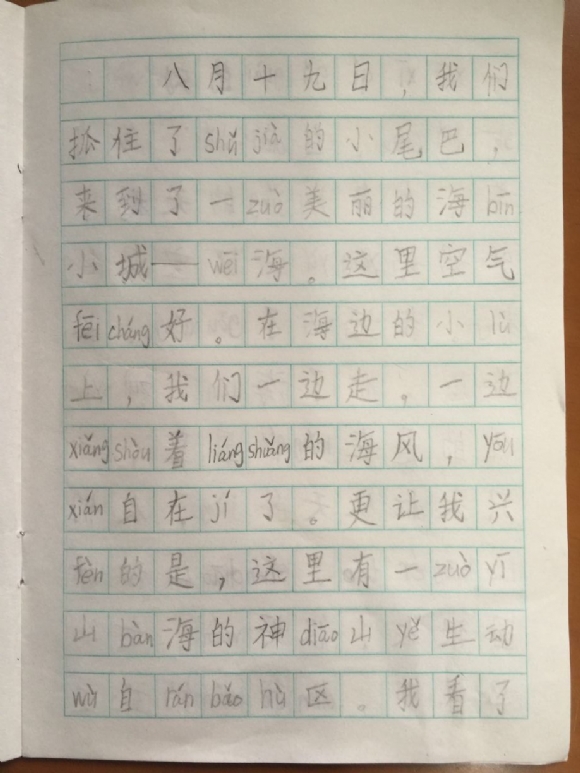 八月十九日，我们
抓住了shǔ jià的小尾巴，
来到了一zuò美丽的海bīn
小城——wēi海。这里空气
fēi cháng好。在海边的小lù
上，我们一边走。一边
xiǎng shòu着liáng shuǎng的海风，yōu
xián自在jí了。更让我兴
fèn的是，这里有一zuò yī
山bàn海的神diāo山yě生动
wù自rán bǎo hù区。我看了